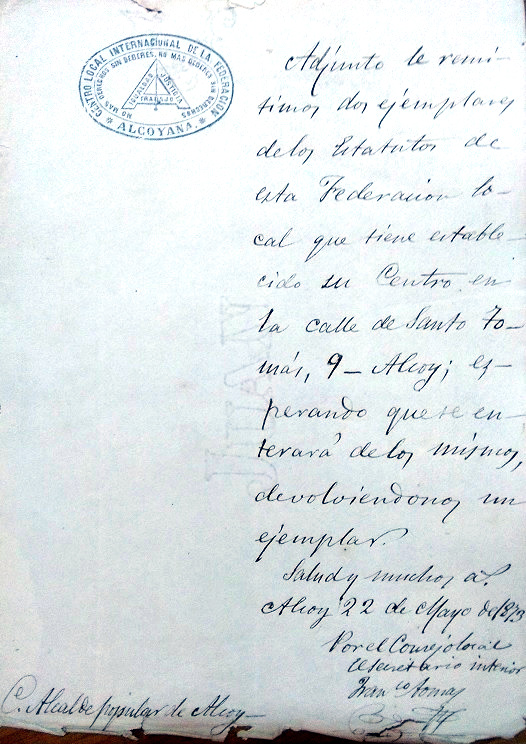 CENTRO LOCAL INTERNACIONAL DE LA FEDERACION
* ALCOYANA. *
NO MAS DERECHOS SIN DEBERES, NO MAS DEBERES SIN DERECHOS
IGUALDAD JUSTICIA
TRABAJO
Adjunto le remi-
timos dos ejemplares
de los Estatutos de
esta Federacion lo-
cal que tiene estable-
cido su Centro en
la calle de Santo To-
más, 9 — Alcoy; es-
perando que se en-
terará de los mismos,
devolviendonos un
ejemplar.
Salud y muchos a.
Alcoy 22 de Mayo de 1873
Por el Consejo local
El secretario interior
Franco Tomas
C. Alcalde popular de Alcoy